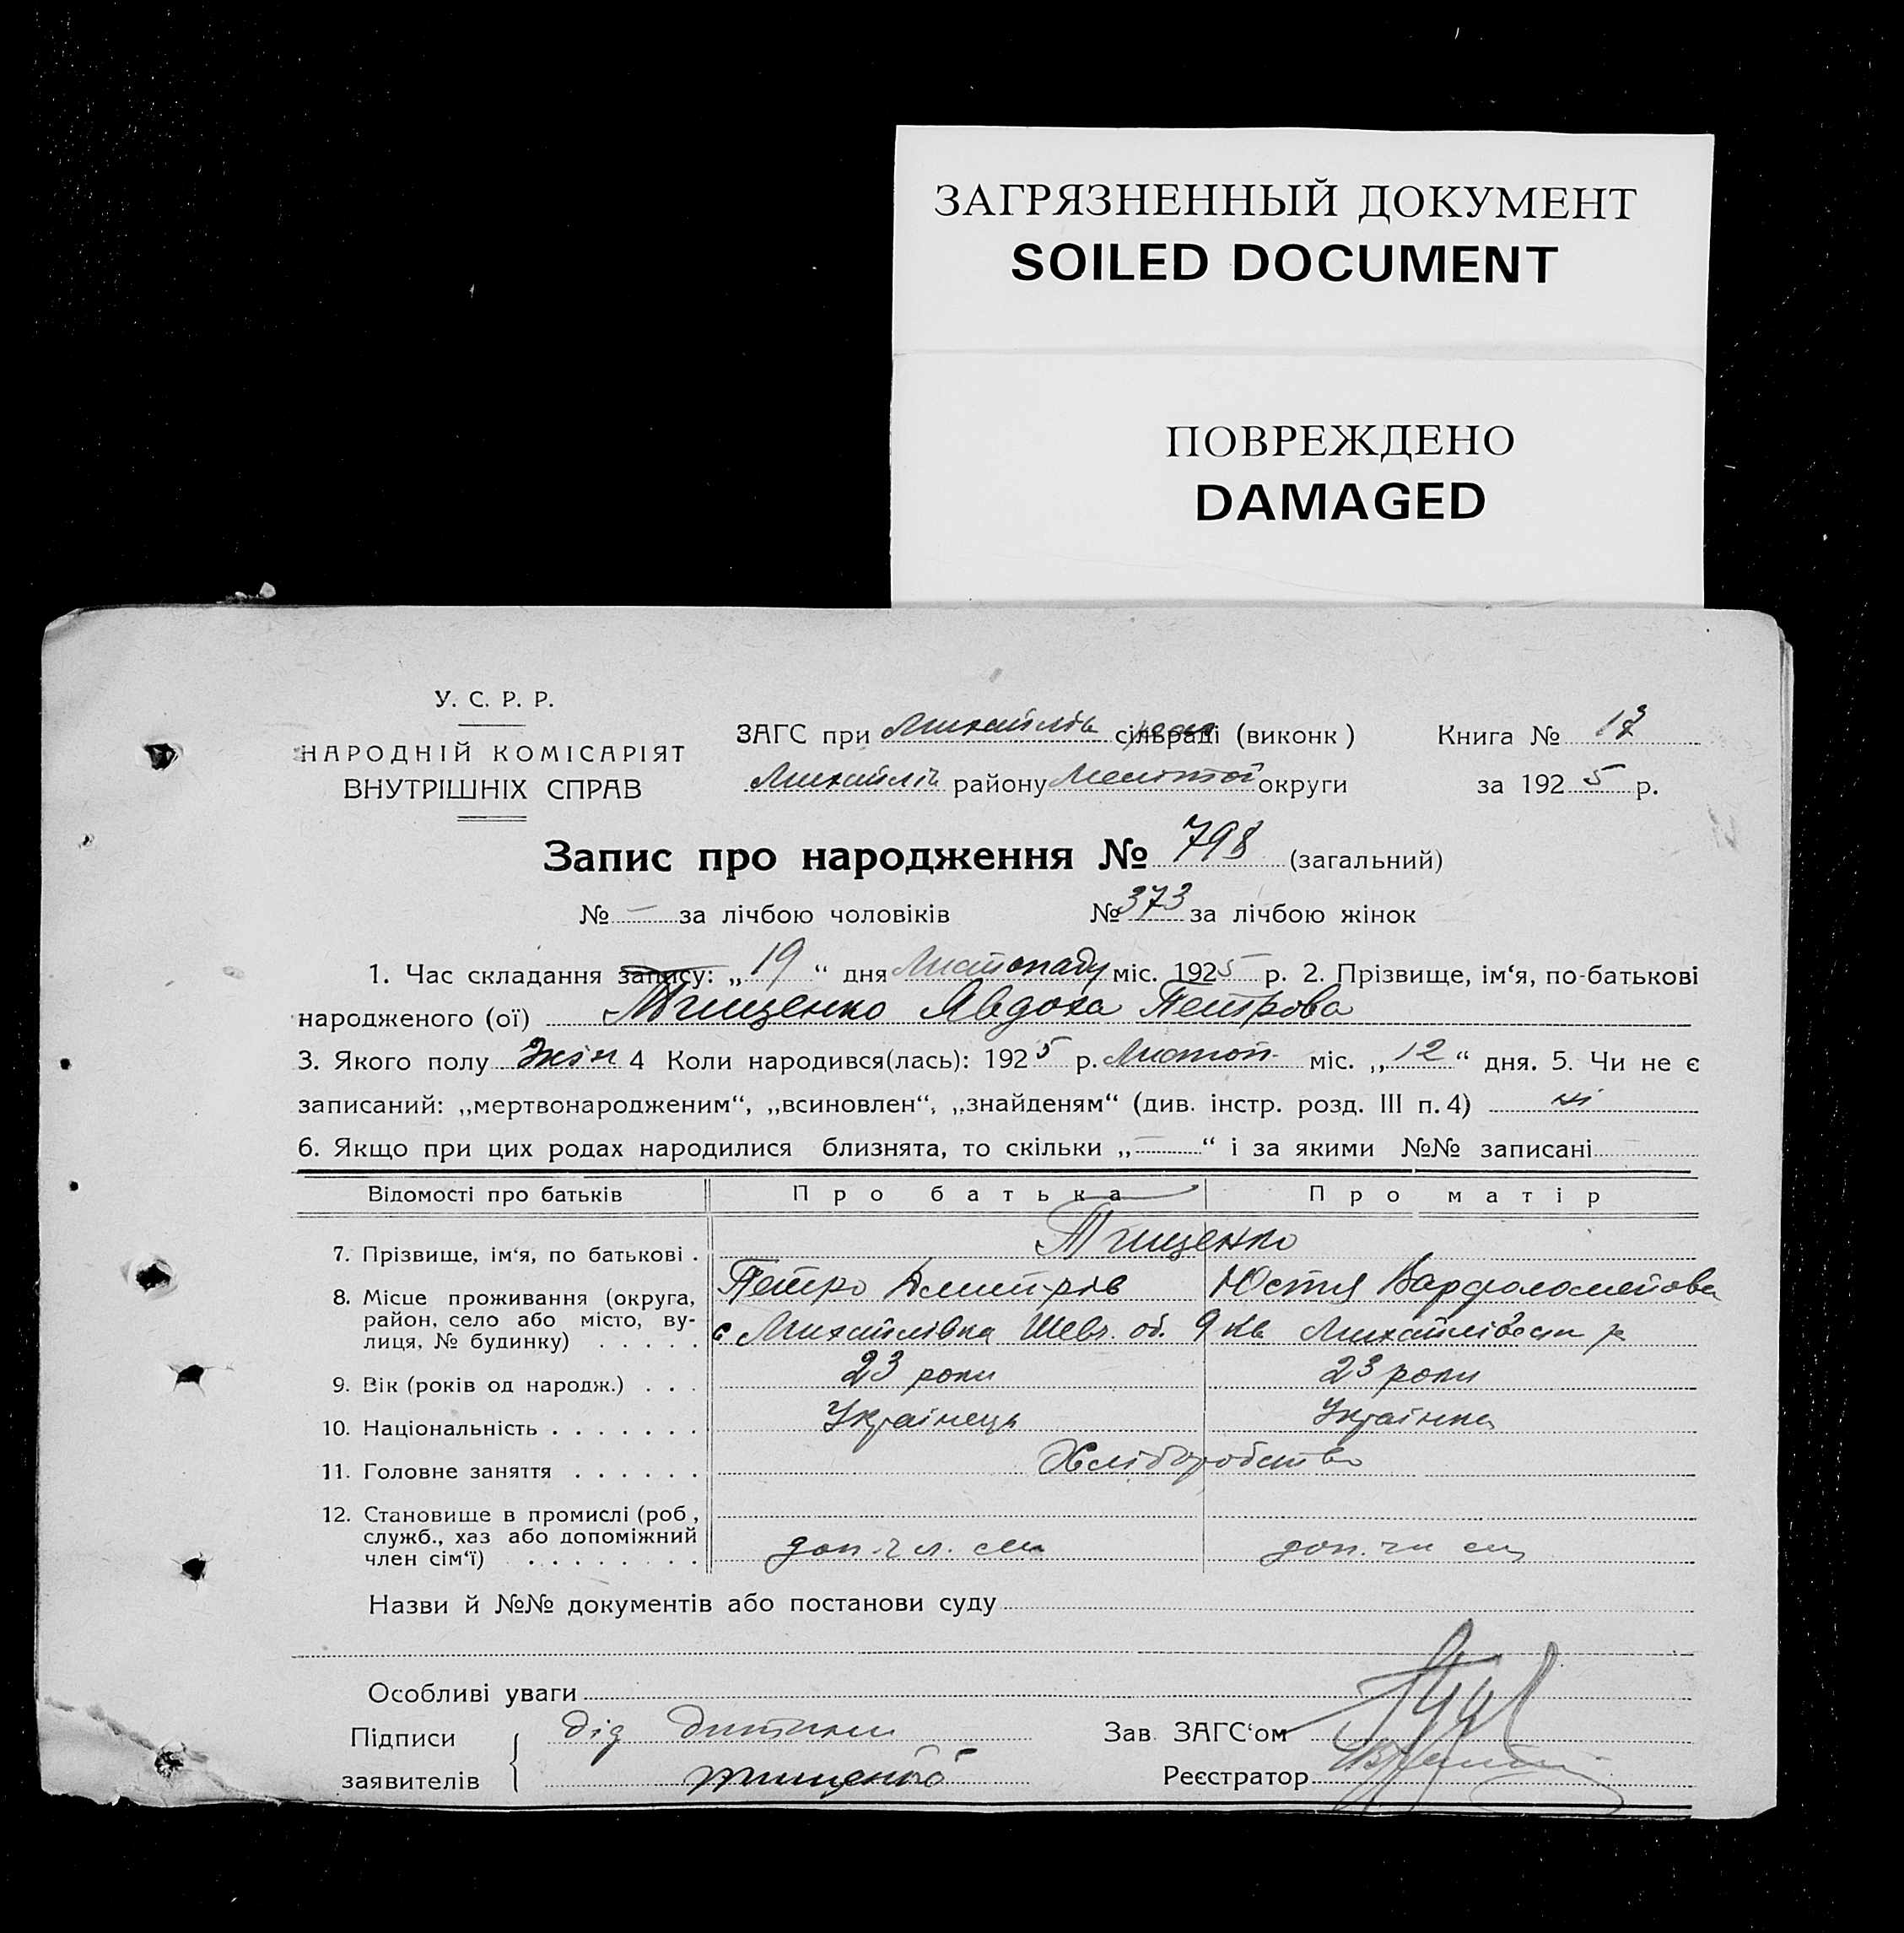 ЗАГРЯЗНЕННЫЙ ДОКУМЕНТ
SOILED DOCUMENT
ПОВРЕЖДЕНО
DAMAGED
У. С. Р. Р.
НАРОДНІЙ КОМІСАРІЯТ
ВНУТРІШНІХ СПРАВ
ЗАГС при Михайлів сільраді (виконк) Книга №
Михайлів району округи за 1925 р.
Запис про народження № 798 (загальний)
№ — за лічбою чоловіків № 373 за лічбою жінок
1. Час складання запису: „19“ дня Листопаду міс. 1925 р. 2. Прізвище, ім‘я, по-батькові
народженого (ої) Тищенко Явдоха Петрова
3. Якого полу жін 4 Коли народився(лась): 1925 р. Листоп. міс. „12“ дня. 5. Чи не є
записаний: „мертвонародженим“, „всиновлен“, „знайденям“ (див. інстр. розд. III п. 4) ні
6. Якщо при цих родах народилися близнята, то скільки „—“ і за якими №№ записані
Відомості про батьків Про батька Про матір
7. Прізвище, ім‘я, по батькові . Тищенко
Петро Дмитрів Юстя Варфоломеїова
8. Місце проживання (округа, район, село або місто, вулиця, № будинку) . . . . . с Михайлівка Шевч. об. 9 кв Михайлівськ р
9. Вік (років од народж.) . . . 23 роки 23 роки
10. Національність . . . . . . . Українець Українка
11. Головне заняття . . . . . . Хліборобство
12. Становище в промислі (роб, служб., хаз або допоміжний член сім‘ї) . . . . . . . . доп. чл. сім доп. чл сім
Назви й №№ документів або постанови суду
Особливі уваги
Підписи дід дитини Зав. ЗАГС‘ом
заявителів Тищенко Реєстратор